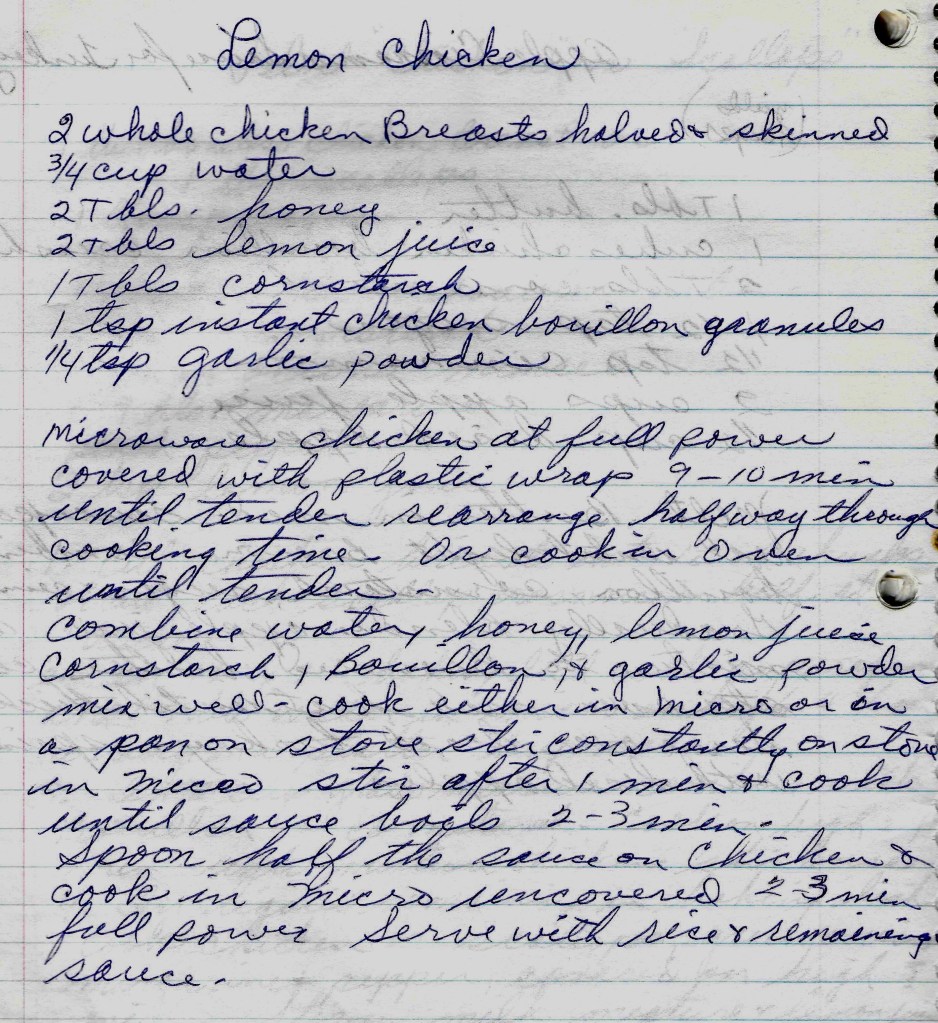 Lemon Chicken
2 whole chicken Breasts halved & skinned
3/4 cup water
2 Tbls. honey
2 Tbls lemon juice
1 Tbls cornstarch
1 tsp instant chicken bouillon granules
1/4 tsp garlic powder
microwave chicken at full power
covered with plastic wrap 9-10 min
until tender rearrange halfway through
cooking time - Or cook in Oven
until tender -
Combine water, honey, lemon juice
Cornstarch, Bouillon, & garlic powder
mix well - cook either in micro or in
a pan on stove stir constantly on stove
in micro stir after 1 min & cook
until sauce boils 2-3 min.
Spoon half the sauce on Chicken &
cook in micro uncovered 2-3 min
full power Serve with rice & remaining
sauce.